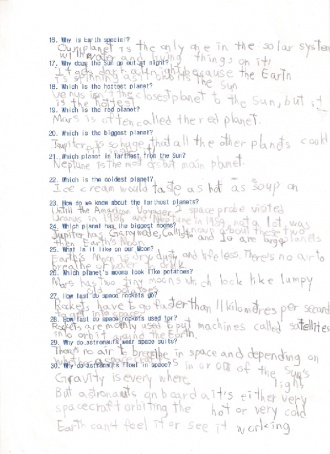 16. Why is Earth special?
Our planet is the only one in the solar system
with water and living things on it.
17. Why does the sun go out at night?
It gets dark at night because the Earth
is spinning
18. Which is the hottest planet?
Venus isn't the closest planet to the Sun, but it
is the hottest
19. Which is the red planet?
Mars is often called the red planet.
20. Which is the biggest planet?
Jupiter is so huge that all the other planets could
21. Which planet is farthest from the Sun?
Neptune is the most distant main planet
22. Which is the coldest planet?
Ice cream would taste as hot as soup on
23. How do we know about the farthest planets?
Until the American Voyager 2 space probe visited
Uranus in 1986 and Neptune in 1989, not a lot was
known about these two
24. Which planet has the biggest moons?
Jupiter has Ganymede, Callisto and Io are large
than Earth's
25. What is it like on our Moon?
Earth's Moon is dry, dusty and lifeless. There's no air to
breathe
26. Which planet's moons look like potatoes?
Mars has two tiny moons which look like lumpy
potatoes
27. How fast do space rockets go?
Rockets have to go faster than 11 kilometres per second
28. What are space rockets used for?
Rockets are mainly used to put machines called satellites
into orbit around the Earth.
29. Why do astronauts wear space suits?
There's no air to breathe in space and depending on
in or out of the Sun's
light
it's either very
hot or very cold
30. Why do astronauts float in space?
Gravity is every where
But astronauts on board a
spacecraft orbiting the
Earth can't feel it or see it working